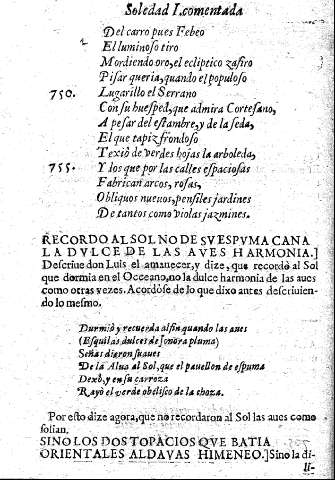 Soledad I. comentada
Del carro pues Febeo
El luminoso tiro
Mordiendo oro, el ecliptico zafiro
Pisar queria, quando el populoso
750. Lugarillo el Serrano
Con su huesped, que admira Cortesano,
A pesar del estambre, y de la seda,
El que tapiz frondoso
Texiò de verdes hojas la arboleda,
755. Y los que por las calles espaciosas
Fabrican arcos, rosas,
Obliquos nueuos, pensiles jardines
De tantos como violas jazmines.
RECORDO AL SOL NO DE SV ESPVMA CANA
LA DVLCE DE LAS AVES HARMONIA.]
Descriue don Luis el amanecer, y dize, que recordò al Sol
que dormia en el Occeano, no la dulce harmonia de las aues
como otras vezes. Acordòse de lo que dixo antes descriuien-
do lo mesmo.
Durmiò y recuerda alfin quando las aues
(Esquilas dulces de sonora pluma)
Señas dieron suaues
De la Alua al Sol, que el pauellon de espuma
Dexò, y en su carroza
Rayò el verde obelisco de la choza.
Por esto dize agora, que no recordaron al Sol las aues como
solian.
SINO LOS DOS TOPACIOS QVE BATIA
ORIENTALES ALDAVAS HIMENEO.] Sino la di-
li-